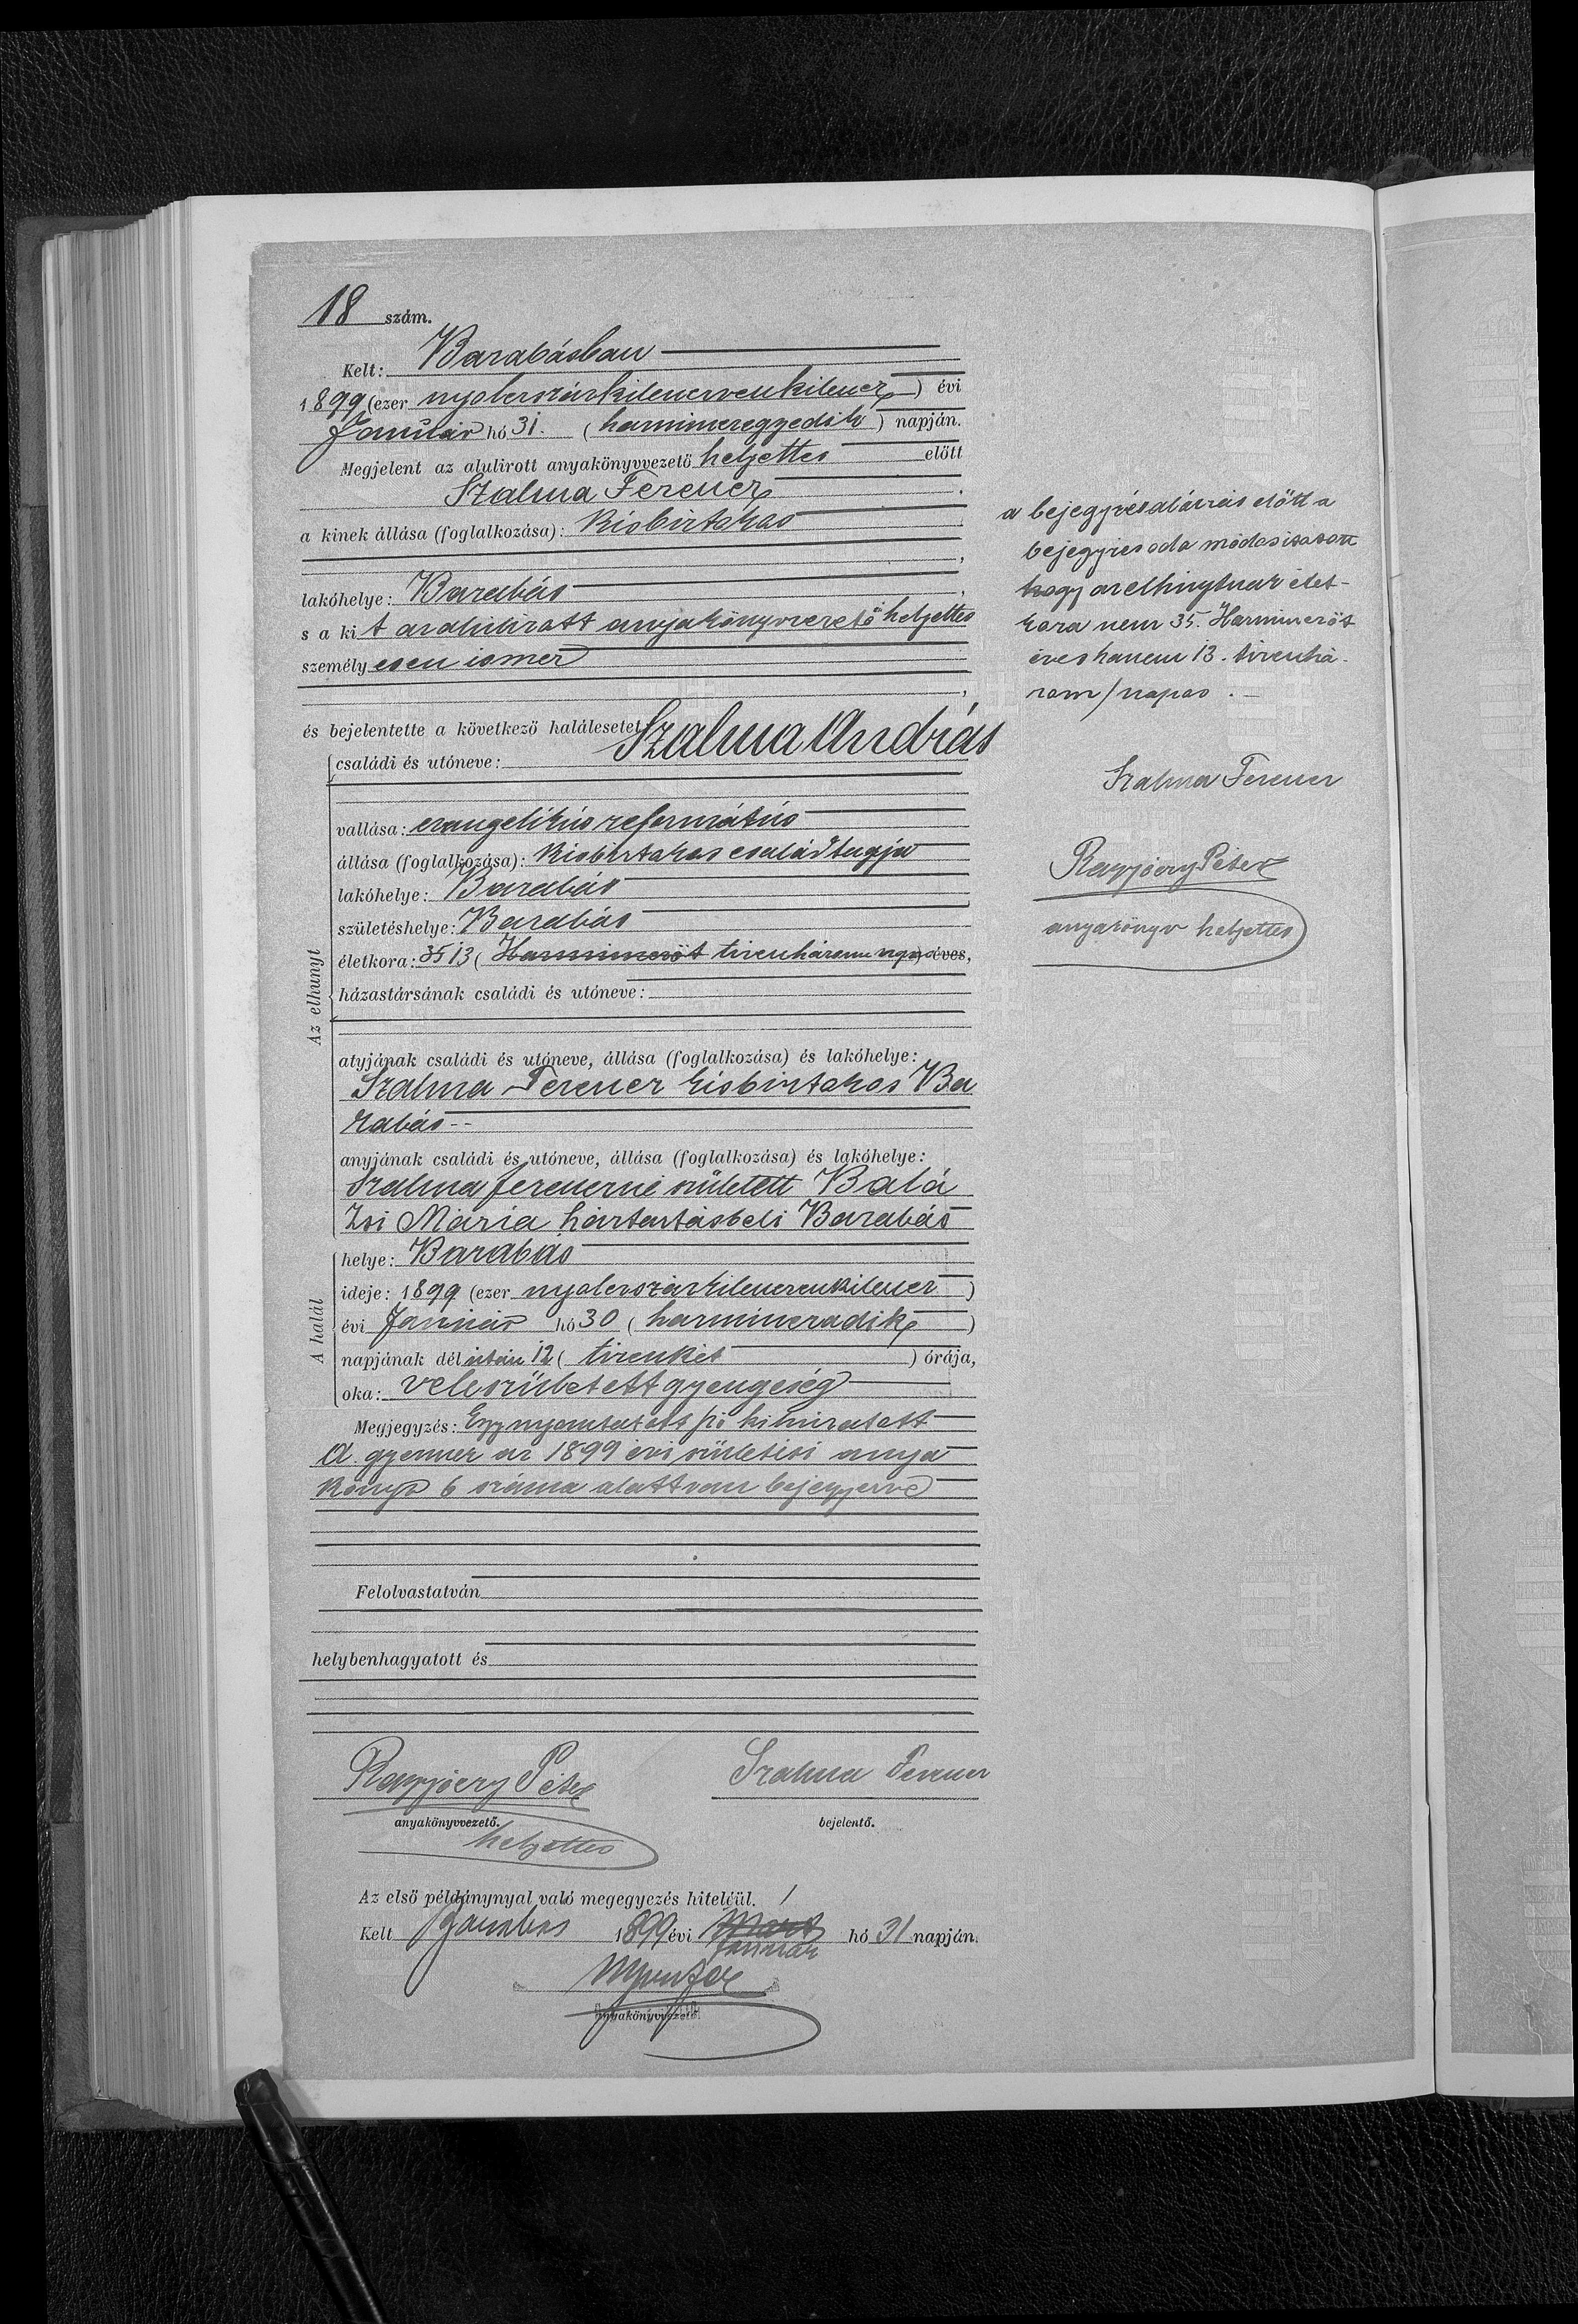 18 szám.
Kelt: Barabásban
1899 (ezer nyolcszázkilencvenkilenc) évi
Január hó 31. (harmincegyedik) napján.
Megjelent az alulirott anyakönyvvezető helyettes előtt
Szalma Ferencz
a kinek állása (foglalkozása): Kisbirtokos
,
lakóhelye: Barabás,
s a kit az alulirott anyakönyvvezető helyettes
személyesen ismer
,
és bejelentette a következő halálesetet:
családi és utóneve: Szalma András
Az elhunyt
vallása: evangelikus református
állása (foglalkozása): Kisbirtokos családtagja
lakóhelye: Barabás
születéshelye: Barabás
életkora: 35 13 (Harmincöt tizenhárom napos) éves,
házastársának családi és utóneve:
atyjának családi és utóneve, állása (foglalkozása) és lakóhelye:
Szalma Ferencz kisbirtokos Ba
rabás --
anyjának családi és utóneve, állása (foglalkozása) és lakóhelye:
Szalma Ferenczné született Balá
zsi Mária háztartásbeli Barabás
A halál
helye: Barabás
ideje: 1899 (ezer nyolcszázkilencvenkilenc)
évi Január hó 30 (harminczadik)
napjának délután 12 (tizenkét) órája,
oka: veleszületett gyengeség
Megjegyzés: Egy nyomtatott szó kihúzatott
A gyermek az 1899 évi születési anya
könyv 6 száma alatt van bejegyezve
Felolvastatván
helybenhagyatott és
Péter
anyakönyvvezető.
helyettes
Szalma Ferencz
bejelentő.
Az első példánynyal való megegyezés hiteléül.
Kelt 1899 évi Január hó 31 napján.
anyakönyvvezető.
a bejegyzés aláirás előtt a
bejegyzés oda módosittatott
hogy az elhunytnak élet-
kora nem 35. Harmincöt
éves hanem 13. tizenhá-
rom / napos . —
Szalma Ferencz
Péter
anyakönyv helyettes